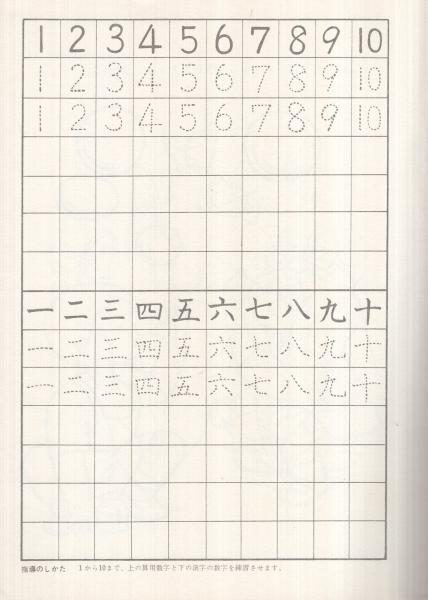 1 2 3 4 5 6 7 8 9 10
1 2 3 4 5 6 7 8 9 10
1 2 3 4 5 6 7 8 9 10
一 二 三 四 五 六 七 八 九 十
一 二 三 四 五 六 七 八 九 十
一 二 三 四 五 六 七 八 九 十
指導のしかた 1から10まで、上の算用数字と下の漢字の数字を練習させます。